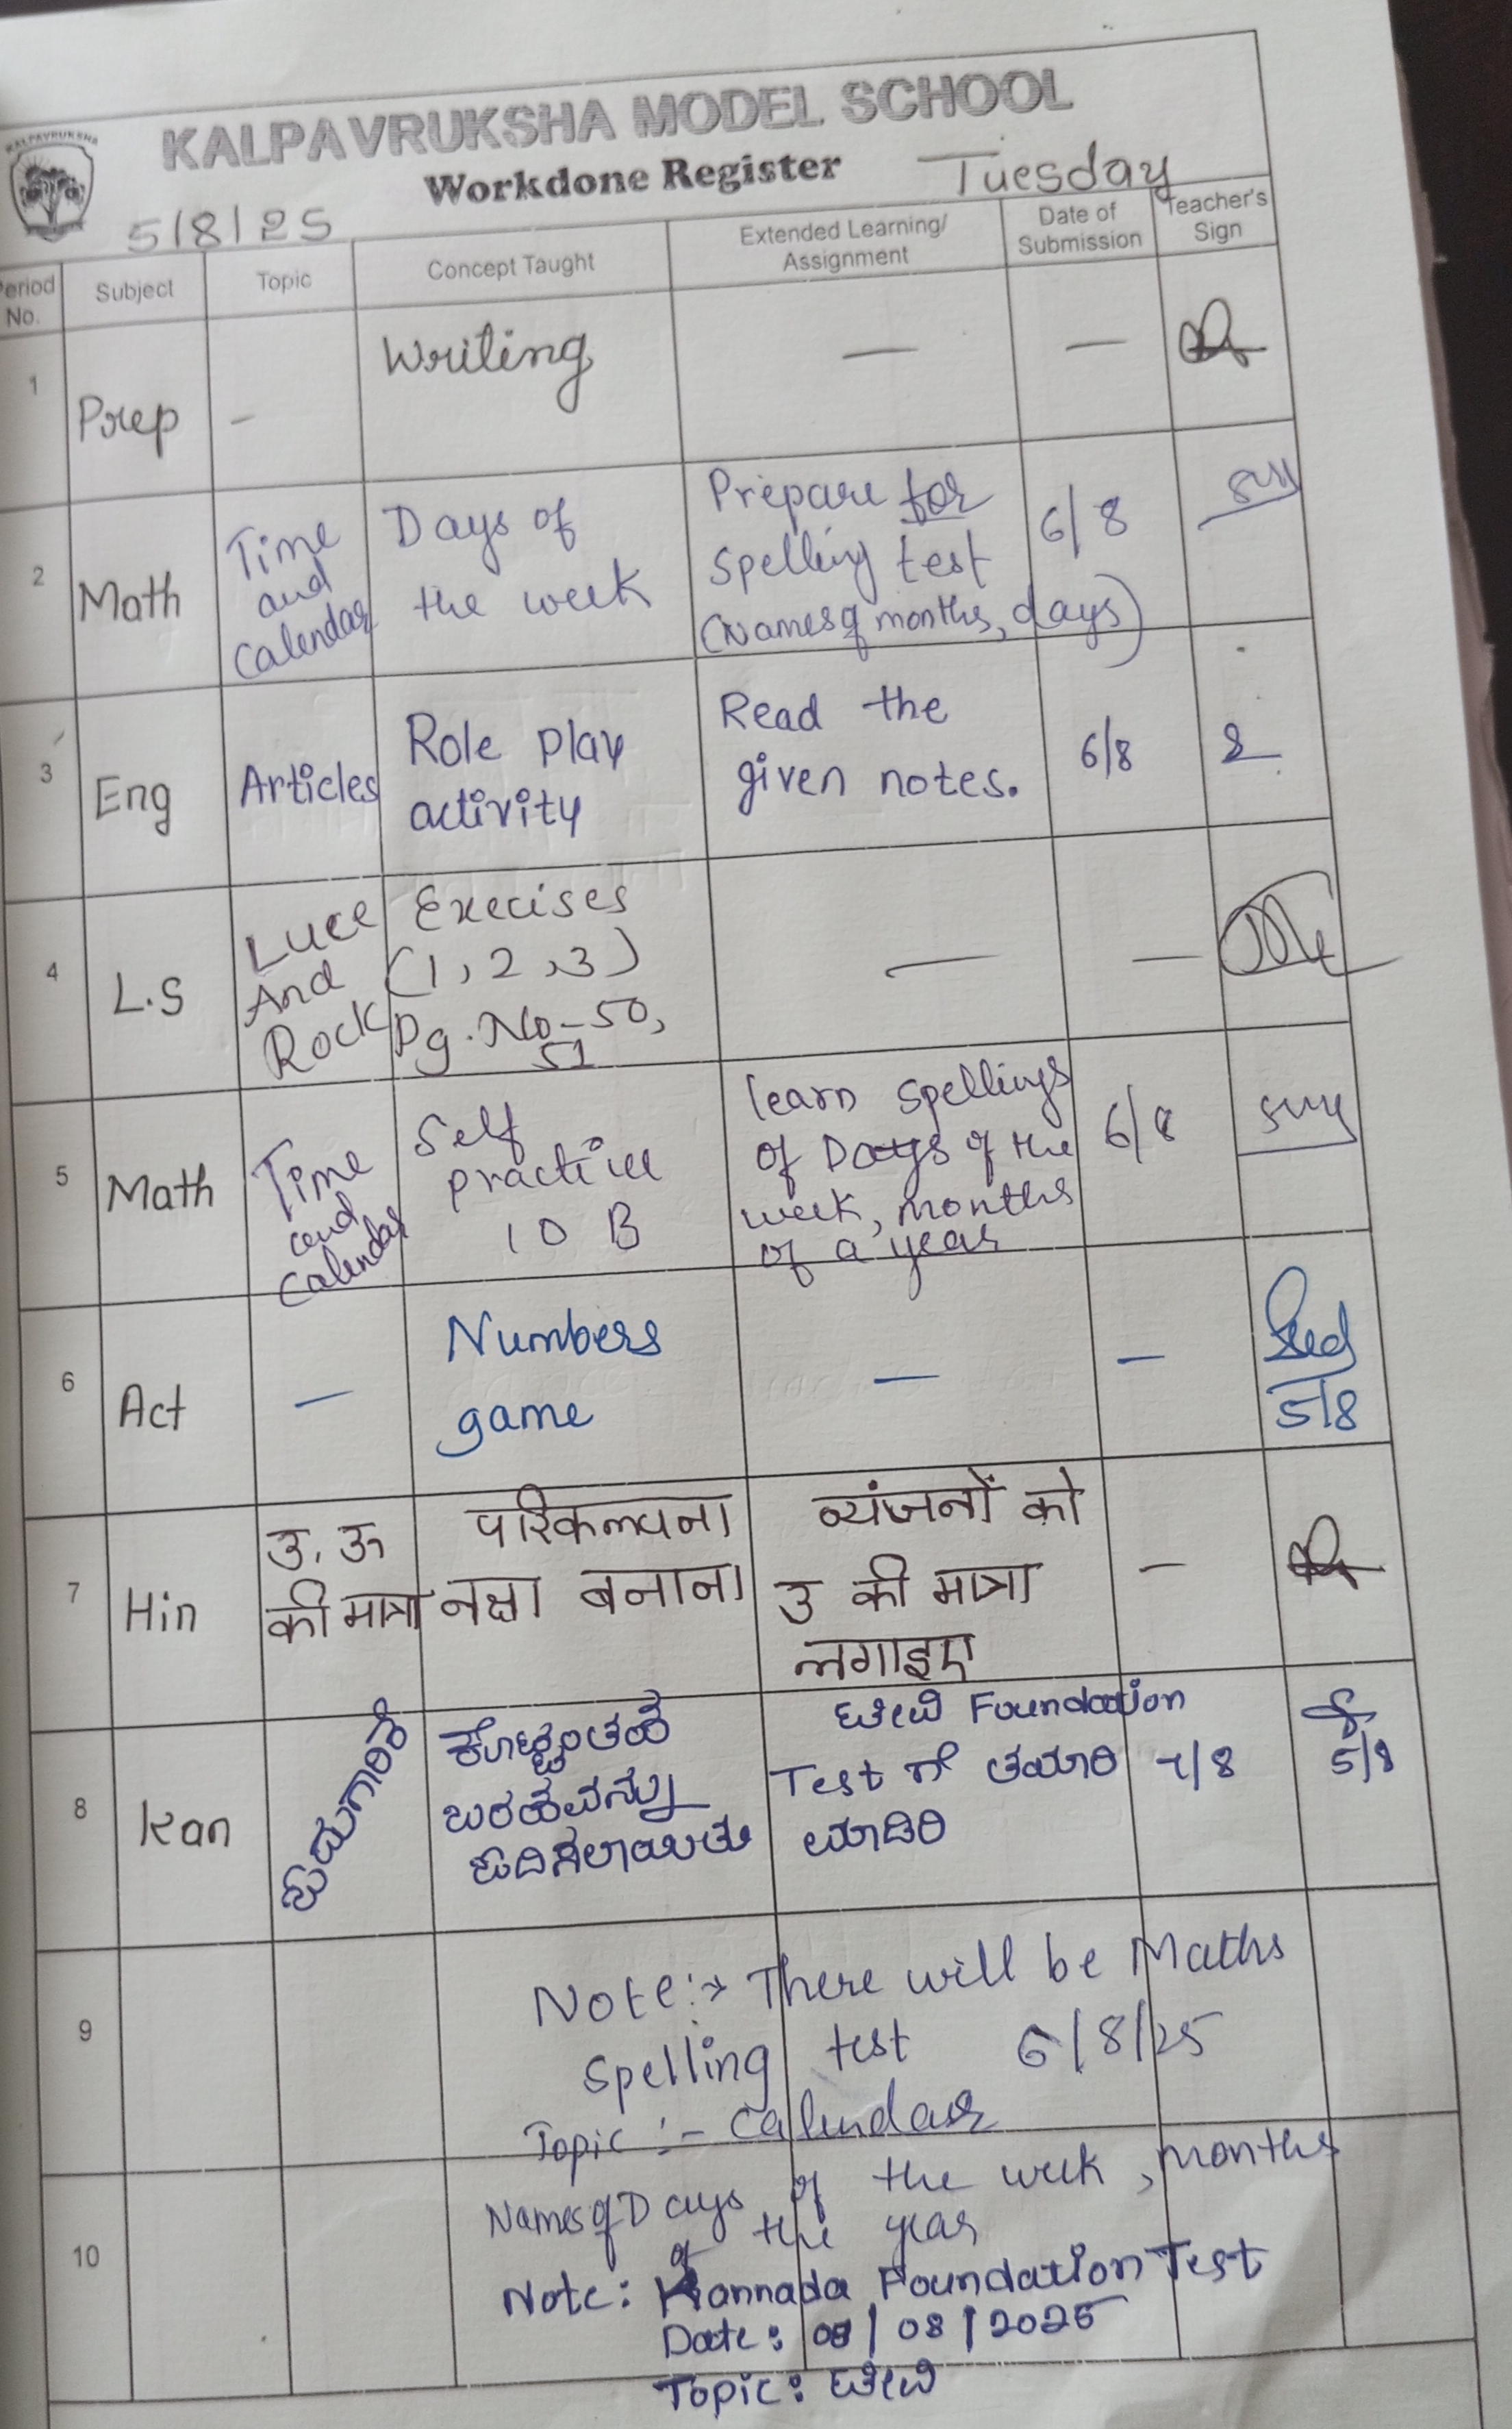 KALPAVRUKSHA
KALPAVRUKSHA MODEL SCHOOL
Workdone Register
Tuesday
5/8/25
Period No.
Subject
Topic
Concept Taught
Extended Learning/
Assignment
Date of
Submission
Teacher's
Sign
1
Prep
-
Writing
—
—
2
Math
Time
and
Calendar
Days of
the week
Prepare for
Spelling test
(Names of months, days)
6/8
3
Eng
Articles
Role play
activity
Read the
given notes.
6/8
4
L.S
Luce
And
Rock
Execises
(1, 2, 3)
Pg. No-50,
51
—
—
5
Math
Time
and
Calendar
Self
practice
10 B
learn spellings
of Days of the
week, months
of a year
6/8
6
Act
—
Numbers
game
—
—
5/8
7
Hin
उ, ऊ
की मात्रा
परिकल्पना
नक्षा बनाना
व्यंजनों को
उ की मात्रा
लगाइए
—
8
Kan
ಕೊಟ್ಟಂತಹ
ಬರಹವನ್ನು
ಓದಿಸಲಾಯಿತು
Foundation
Test ಗೆ ತಯಾರಿ
ಮಾಡಿರಿ
/8
5/8
9
Note:→ There will be Maths
Spelling test 6/8/25
Topic :- Calendar
10
Names of Days of the week, months
of the year
Note: Kannada Foundation Test
Date: /08/2025
Topic: